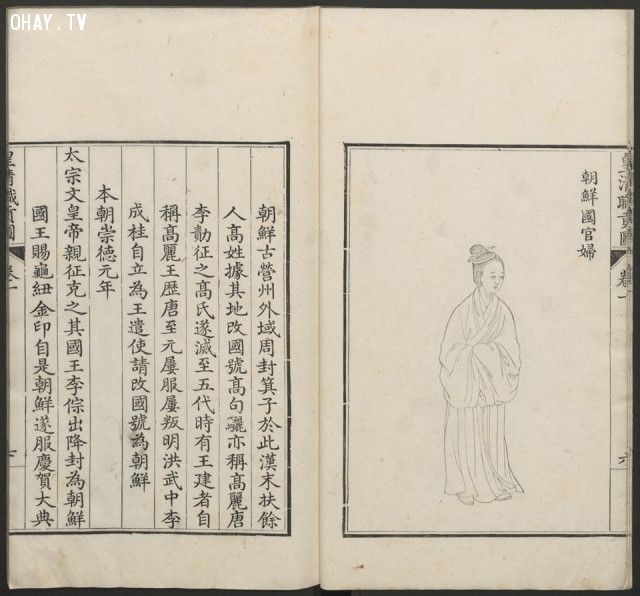 OHAY.TV
皇清職貢圖
卷一
六
朝鮮國官婦
朝鮮古營州外域周封箕子於此漢末扶餘
人高姓據其地改國號高句驪亦稱高麗唐
李勣征之高氏遂滅至五代時有王建者自
稱高麗王歷唐至元屢服屢叛明洪武中李
成桂自立為王遣使請改國號為朝鮮
本朝崇德元年
太宗文皇帝親征克之其國王李倧出降封為朝鮮
國王賜龜紐金印自是朝鮮遂服慶賀大典
皇清職貢圖
卷一